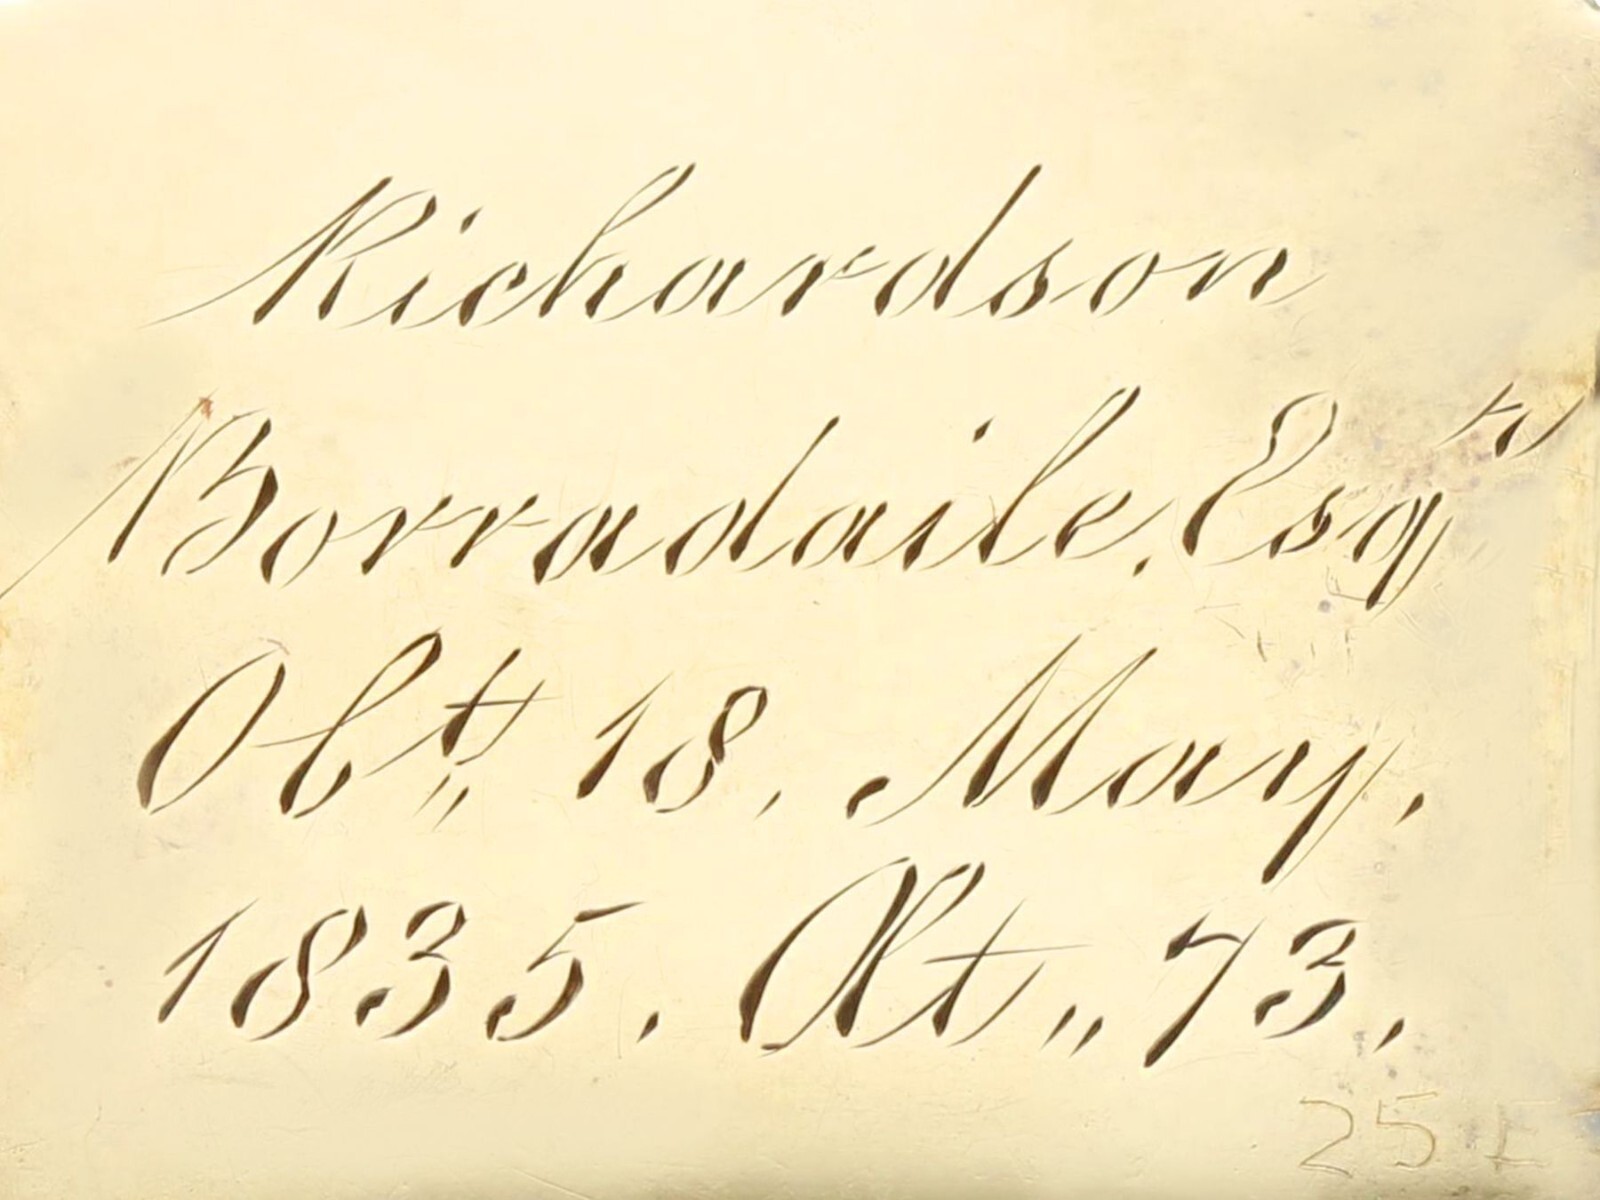 Richardson
Borradaile, Esq.re
Obt,, 18, May,
1835. Æt,, 73,
25